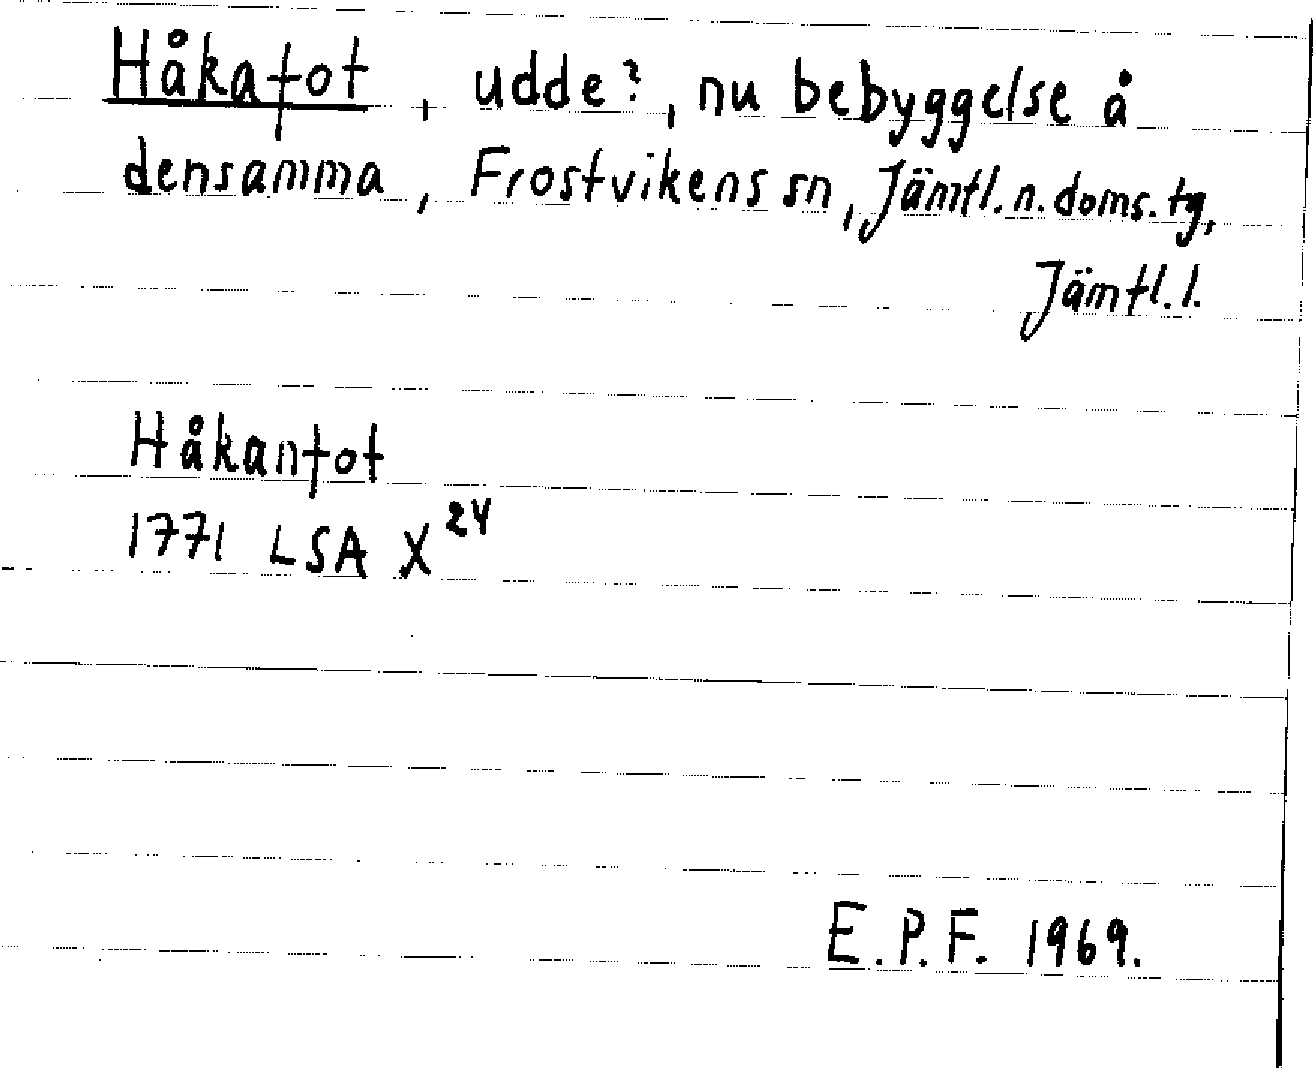 Håkafot, udde?, nu bebyggelse å
densamma, Frostvikens sn, Jämtl. n. doms. tg,
Jämtl. l.
Håkanfot
1771 LSA X²⁴
E.P.F. 1969.